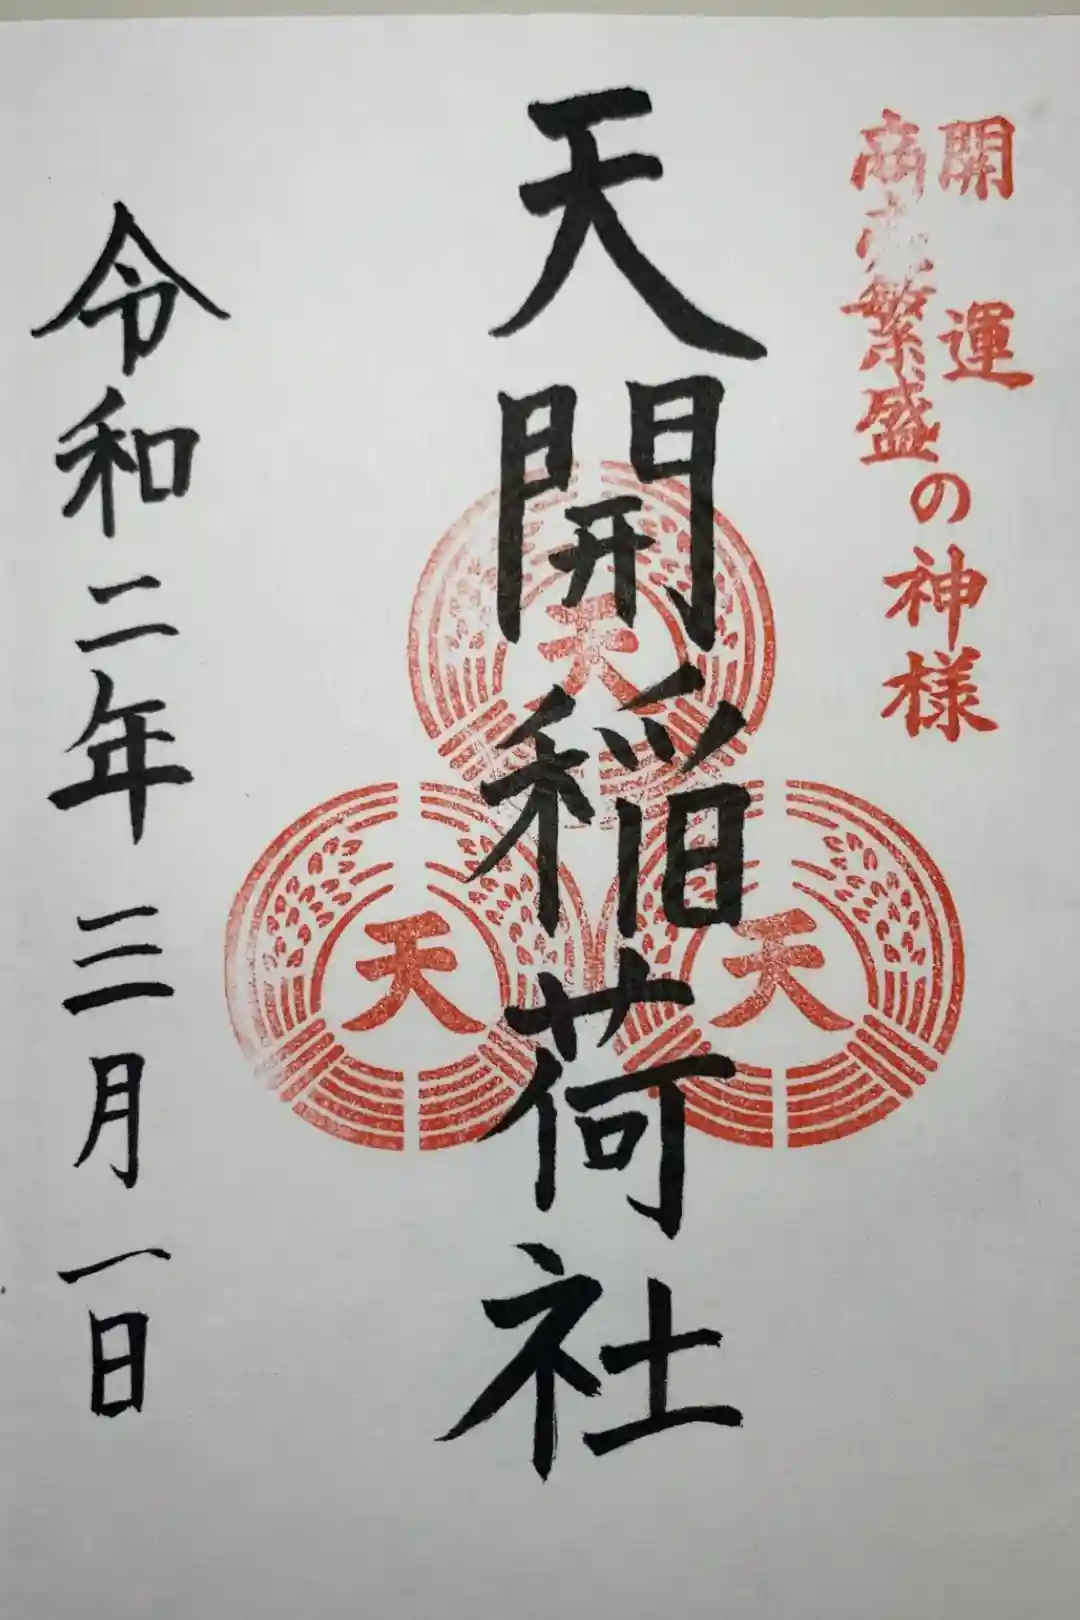 開運
商売繁盛
の神様
天開稲荷社
天
天
天
令和二年三月一日